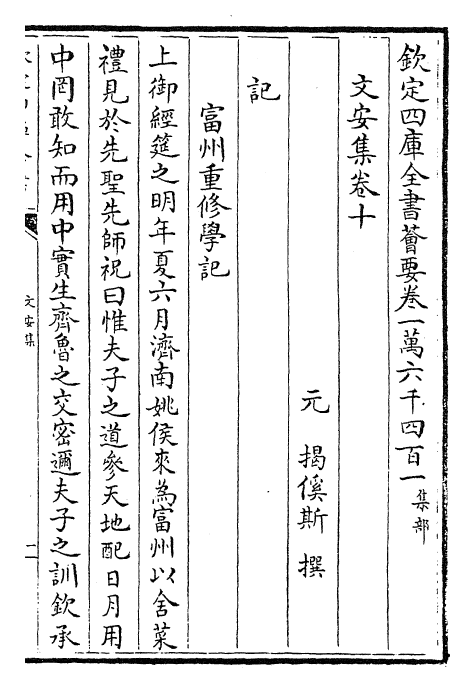 欽定四庫全書薈要卷一萬六千四百一 集部
文安集卷十
元 揭傒斯 撰
記
富州重修學記
上御經筵之明年夏六月濟南姚侯來為富州以舍菜
禮見於先聖先師祝曰惟夫子之道參天地配日月用
中罔敢知而用中實生齊魯之交密邇夫子之訓欽承
文安集